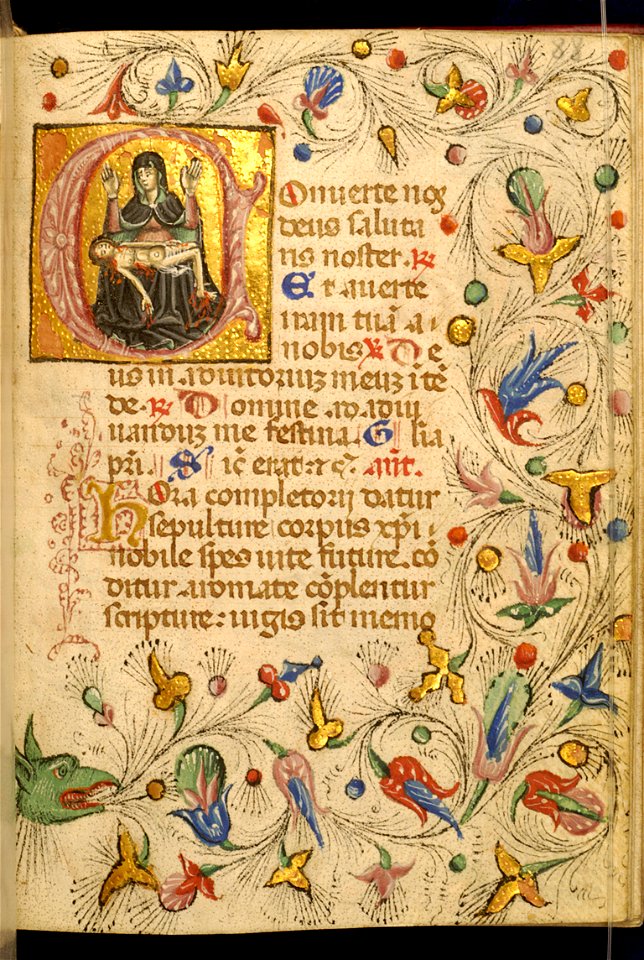 88
Conuerte nos
deus saluta
ris noster. R
Et auerte
iram tuā a ·
nobis V De
us in adiutoriuz meuz ītē
de. R Domine ad adiu
uanduz me festina. Glīa
pr̄i. Sic̄ erat ⁊ c̄. ant̄.
Hora completorij datur
sepulture corpus xp̄i ·
nobile spes uite future. cō
ditur aromate cōplentur
scripture: iugis sit memo